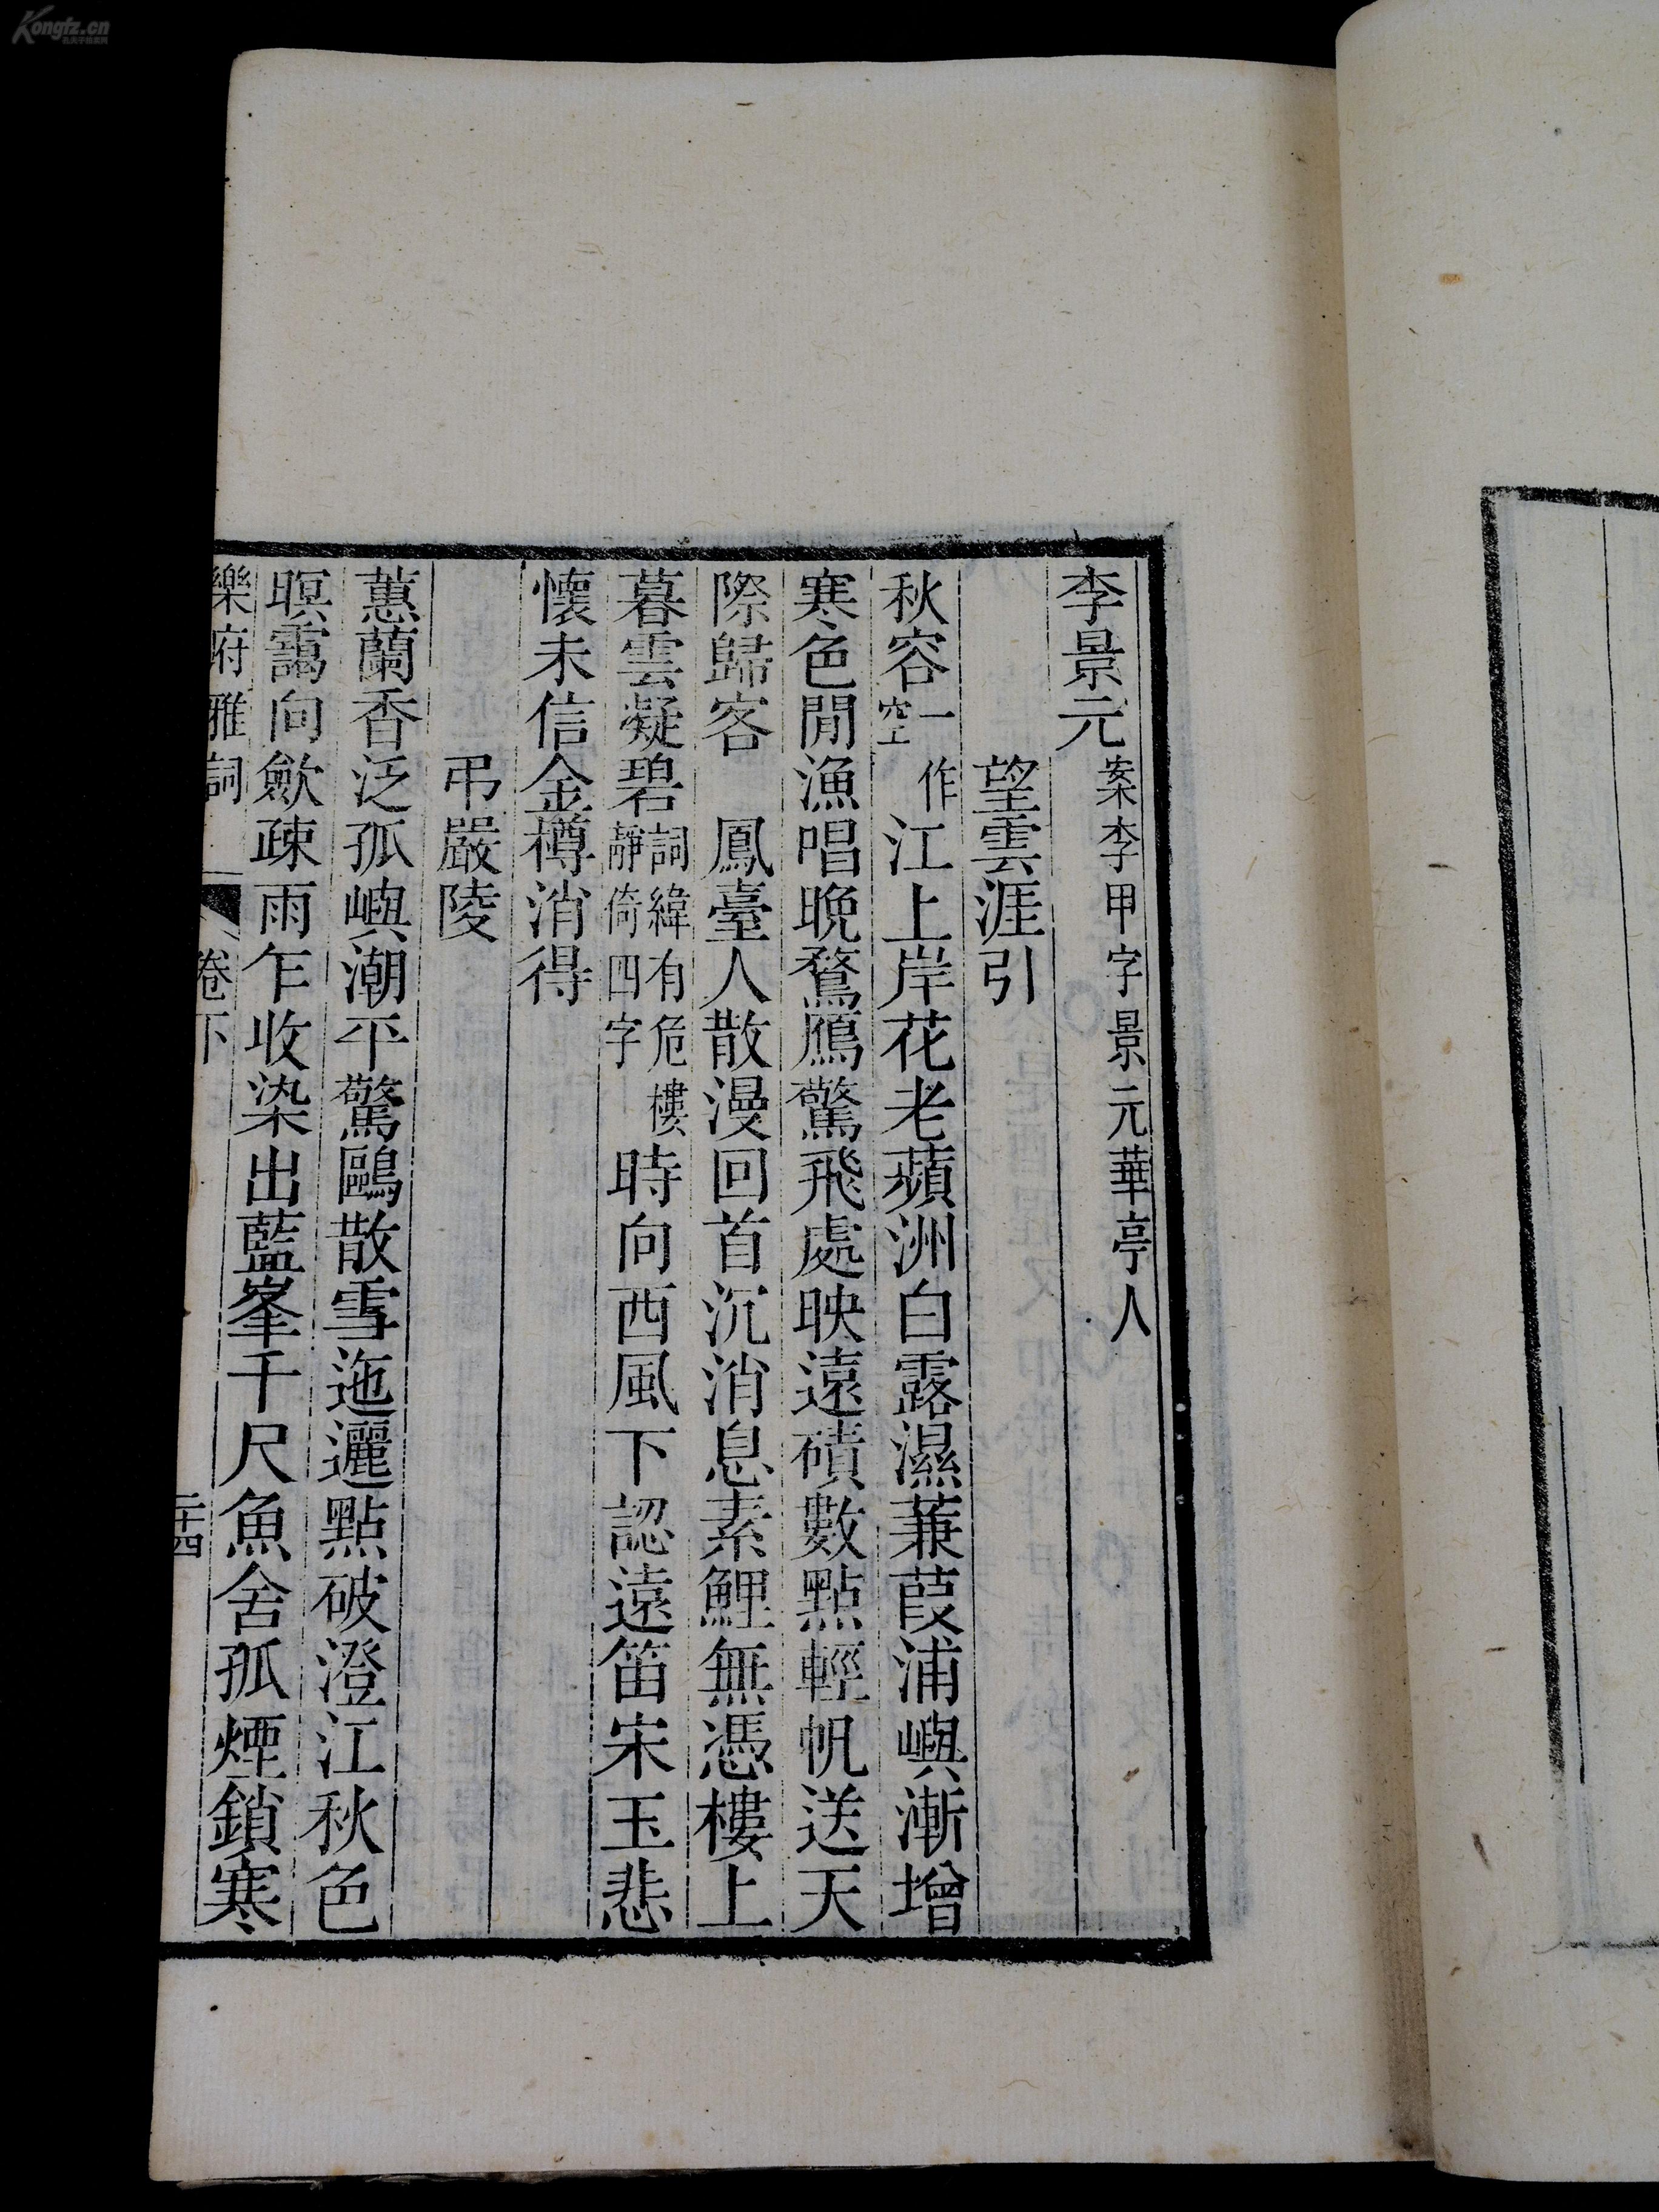 李景元案李甲字景元華亭人
望雲涯引
秋容一作空江上岸花老蘋洲白露濕蒹葭浦嶼漸增
寒色閒漁唱晚鶩鴈驚飛處映遠磧數點輕帆送天
際歸客　鳳臺人散漫回首沉消息素鯉無憑樓上
暮雲凝碧詞緯有危樓靜倚四字時向西風下認遠笛宋玉悲
懷未信金樽消得
弔嚴陵
蕙蘭香泛孤嶼潮平驚鷗散雪迤邐點破澄江秋色
暝靄向歛疎雨乍收染出藍峯千尺魚舍孤煙鎖寒
樂府雅詞 卷下 二十四
Kongfz.cn